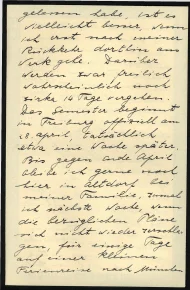 gelesen habe, ist es
vielleicht besser, wenn
ich erst nach meiner
Rückkehr dorthin ans
Werk gehe. Darüber
werden zwar freilich
wahrscheinlich noch
zirka 14 Tage vergehen.
Das Semester beginnt
in Freiburg offiziell am
April, tatsächlich
etwa eine Woche später.
Bis gegen Ende April
bleibe ich gerne noch
hier in Altdorf bei
meiner Familie, zumal
ich nächste Woche, wenn
die bezüglichen Pläne
sich nicht wieder zerschla-
gen, für einige Tage
auf einer kleinen
Ferienreise nach München